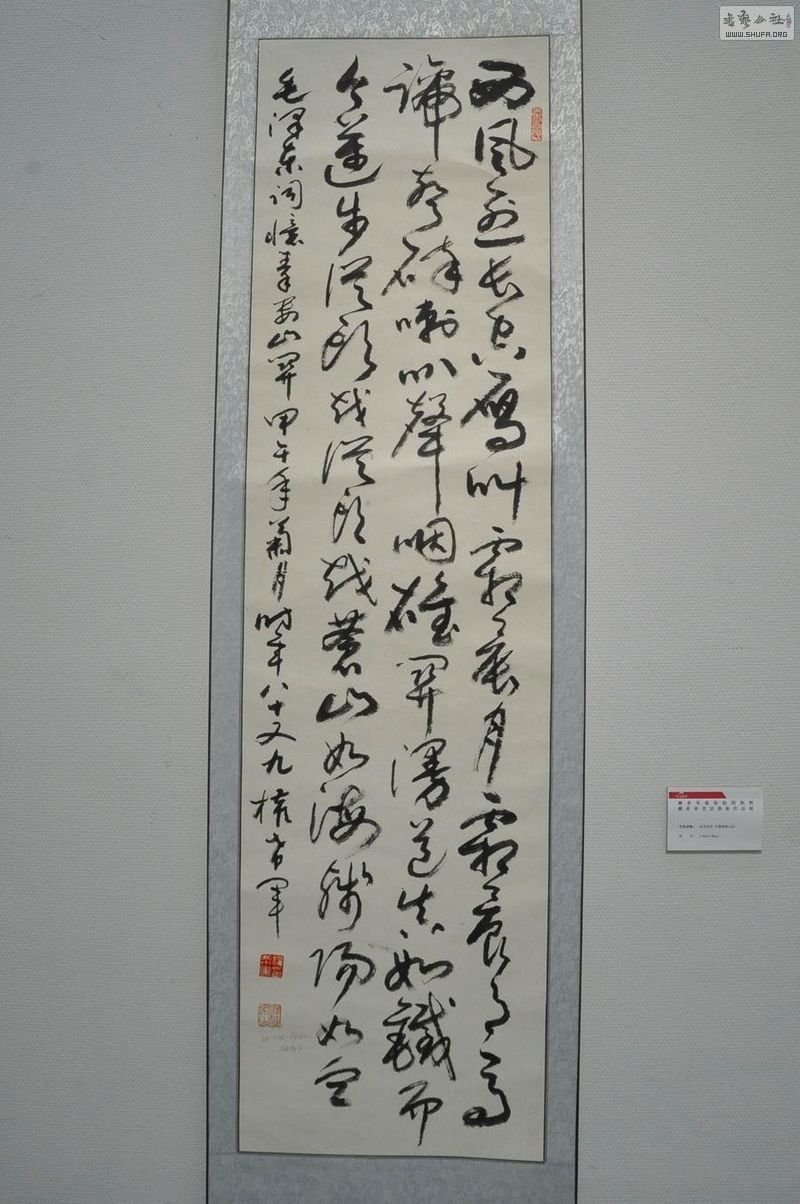 書藝公社
WWW.SHUFA.ORG
西风烈长空雁叫霜晨月霜晨月马
蹄声碎喇叭聲咽雄関漫道真如鐵而
今迈步从头越从头越苍山如海残阳如血
毛泽东词憶秦娄山関甲午年菊月时年八十又九權希军